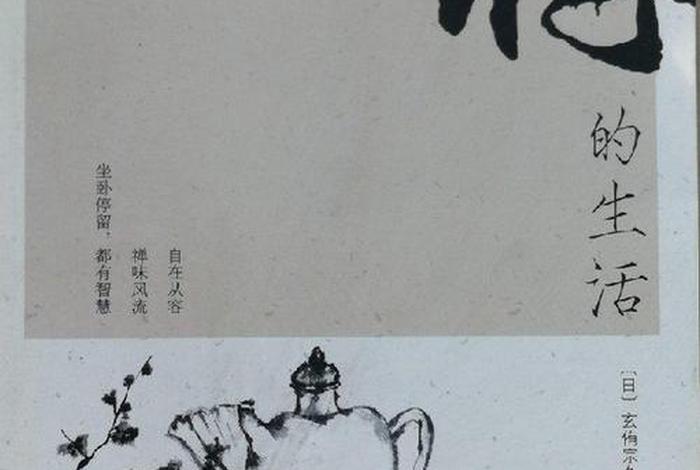 的生活
［日］玄侑宗
自在从容
禅味风流
坐卧停留，都有智慧